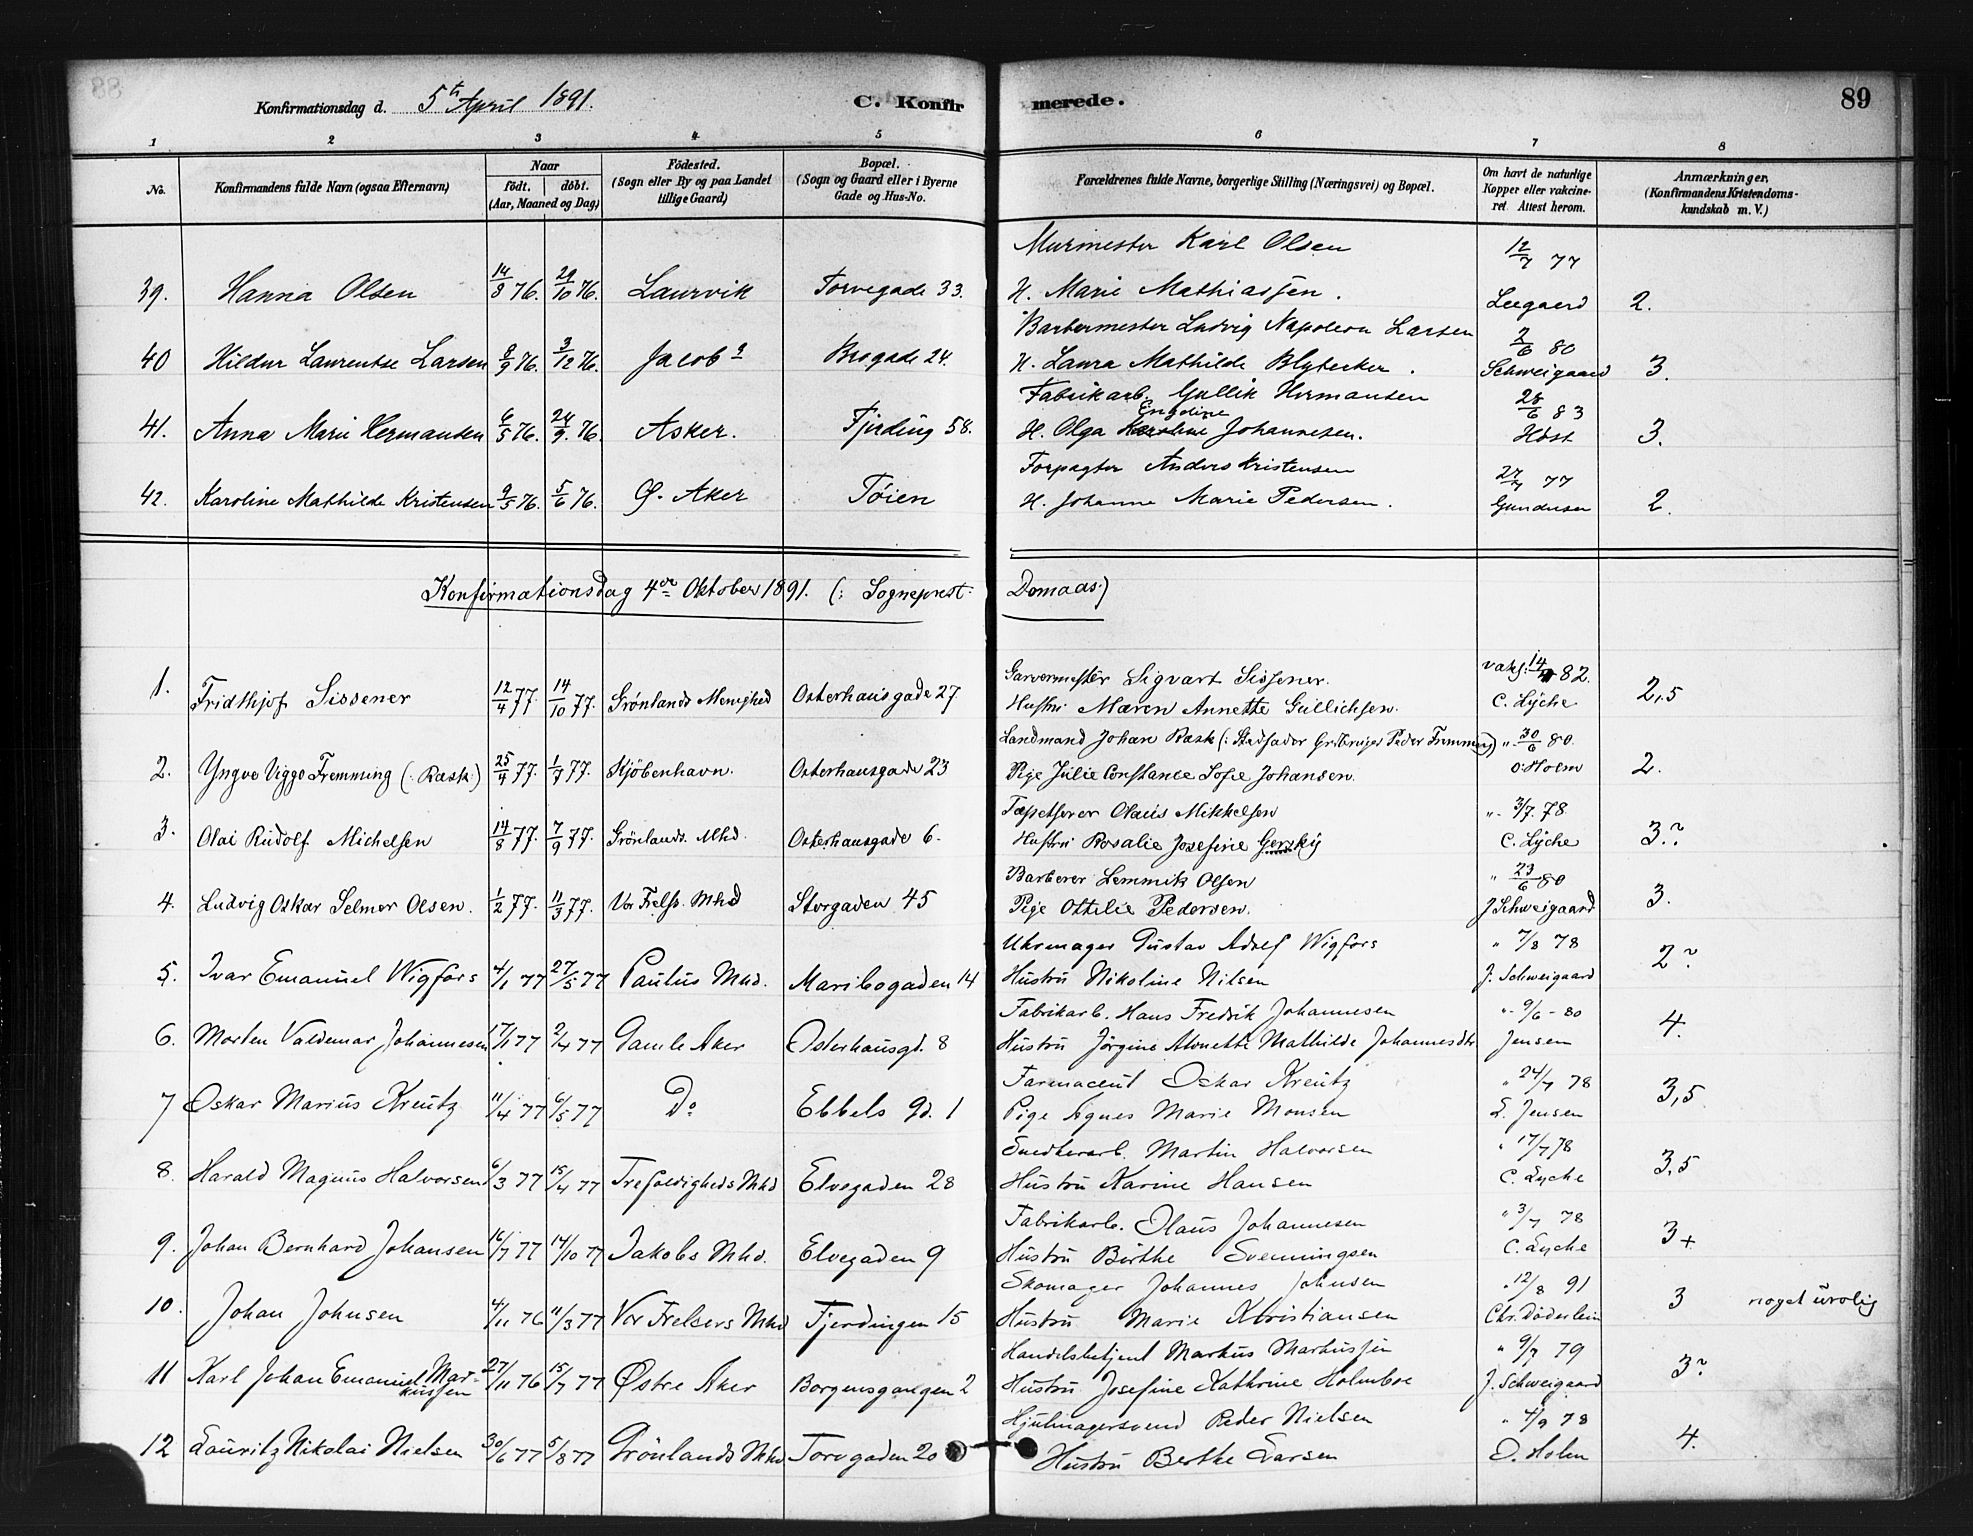 Konfirmationsdag d. 5te April 1891. C. Konfirmerede. 89
1 2 3 4 5 6 7 8
No. Konfirmandens fulde Navn (ogsaa Efternavn) Naar født. døbt. (Aar, Maaned og Dag) Fødested. (Sogn eller By og paa Landet tillige Gaard) Bopæl. (Sogn og Gaard eller i Byerne Gade og Hus-No. Forældrenes fulde Navne, borgerlige Stilling (Næringsvei) og Bopæl. Om havt de naturlige Kopper eller vakcineret. Attest herom. Anmærkninger, (Konfirmandens Kristendomskundskab m. V.)
Murmester Karl Olsen 12/7 77
39. Hanna Olsen 14/8 76. 29/10 76. Laurvik Torvegade 33. H. Marie Mathiassen. Leegaard 2.
Barbermester Ludvig Napoleon Larsen 2/6 80
40 Hildur Laurentse Larsen 8/9 76. 3/12 76. Jacobs Brogade 24. H. Laura Mathilde Blybecker. Schweigaard 3.
Fabrikarb. Gullik Hermansen 28/6 83
41. Anna Marie Hermansen 6/5 76. 24/9 76. Asker. Fjerding 58. H. Olga Engeline Johannesen. Høst 3.
Forpagter Anders Kristensen 27/7 77
42. Karoline Mathilde Kristensen 9/5 76. 5/6 76. Ø. Aker Tøien H. Johanne Marie Pedersen. Gundersen 2.
Konfirmationsdag 4de Oktober 1891. (: Sogneprest Domaas:)
Garvermester Sigvart Sissener. vaks: 14/ 82.
1. Fridthjof Sissener 12/4 77. 14/10 77. Grønlands Menighed Osterhausgade 27 Hustru Maren Annette Gullichsen. C. Lyche 2,5
Landmand Johan Rask (: Stedfader Grdbruger Peder Fremming) " 30/6 80.
2. Yngve Viggo Fremming (: Rask:) 25/4 77. 1/7 77. Kjøbenhavn. Osterhausgade 23 Pige Julie Constance Sofie Johansen. O. Holm 2.
Tapetserer Olaus Mikkelsen " 3/7. 78.
3. Olai Rudolf Michelsen 14/8 77. 7/9 77. Grønlands. Mhd. Osterhausgade 6. Hustru Rosalie Josefine Gersky C. Lyche 3.?
Barberer Lemmik Olsen " 23/6 80
4. Ludvig Oskar Selmer Olsen. 1/2 77. 11/3 77. Vor Frels. Mhd Storgaden 45 Pige Ottilie Pedersen. J Schweigaard 3.
Uhrmager Gustav Adolf Wigfors " 7/8 78
5. Ivar Emanuel Wigfors 4/1 77 27/5 77 Paulus Mhd. Maribogaden 14 Hustru Nikoline Nilsen J. Schweigaard 2?
Fabrikarb. Hans Fredrik Johannesen " 9/6 - 80
6. Morten Valdemar Johannesen 17/1 77 2/4 77 Gamle Aker Osterhausgd. 8 Hustru Jørgine Alvnette Mathilde Johannesdtr Jensen 4.
Farmaceut Oskar Kreutz " 24/7 78
7 Oskar Marius Kreutz 11/4 77 6/5 77 Do Ebbels gd. 1 Pige Agnes Marie Monsen L. Jensen 3,5
Snedkerarb. Martin Halvorsen " 17/7 78
8. Harald Magnus Halvorsen 6/3 77 15/4 77 Trefoldigheds Mhd Elvegaden 28 Hustru Karine Hansen C. Lyche 3,5
Fabrikarb. Olaus Johannesen " 3/7 78
9. Johan Bernhard Johansen 16/7 77 14/10 77 Jakobs Mhd. Elvegaden 9 Hustru Birthe Svenningsen C. Lyche 3+
Skomager Johannes Johnsen " 12/8 91
10. Johan Johnsen 4/11 76 11/3 77 Vor Frelsers Mhd Fjerdingen 15 Hustru Marie Kristiansen Chr. Döderlein 3 noget urolig
Handelsbetjent Markus Markussen " 9/7 79
11 Karl Johan Emanuel Markussen 27/11 76 15/7 77 Østre Aker Borgensgangen 2 Hustru Josefine Kathrine Holmboe J. Schweigaard 3?
Hjulmagersvend Peder Nielsen " 4/9 78
12 Lauritz Nikolai Nielsen 30/6 77 5/8 77 Grönlands Mhd Torvgaden 20 Hustru Berthe Larsen O. Holm 4.